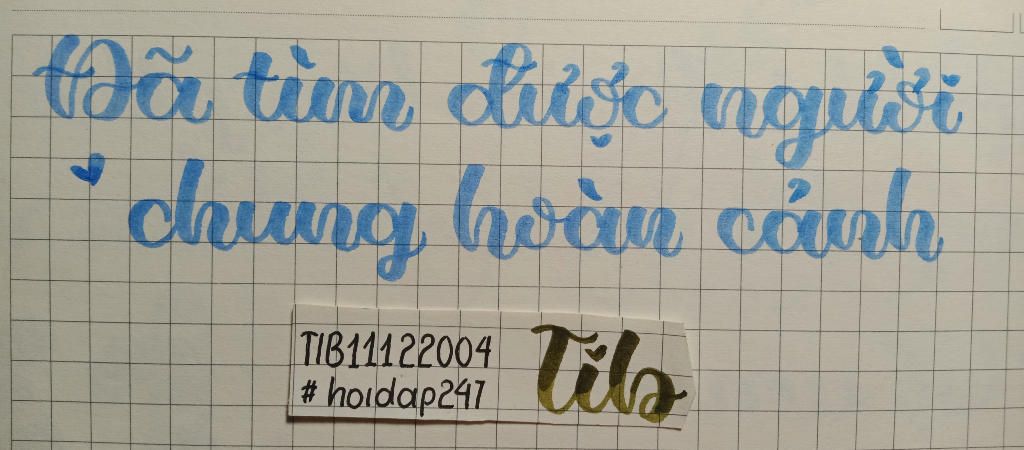 Đã tìm được người
chung hoàn cảnh
TIB11122004
#hoidap247
Tib